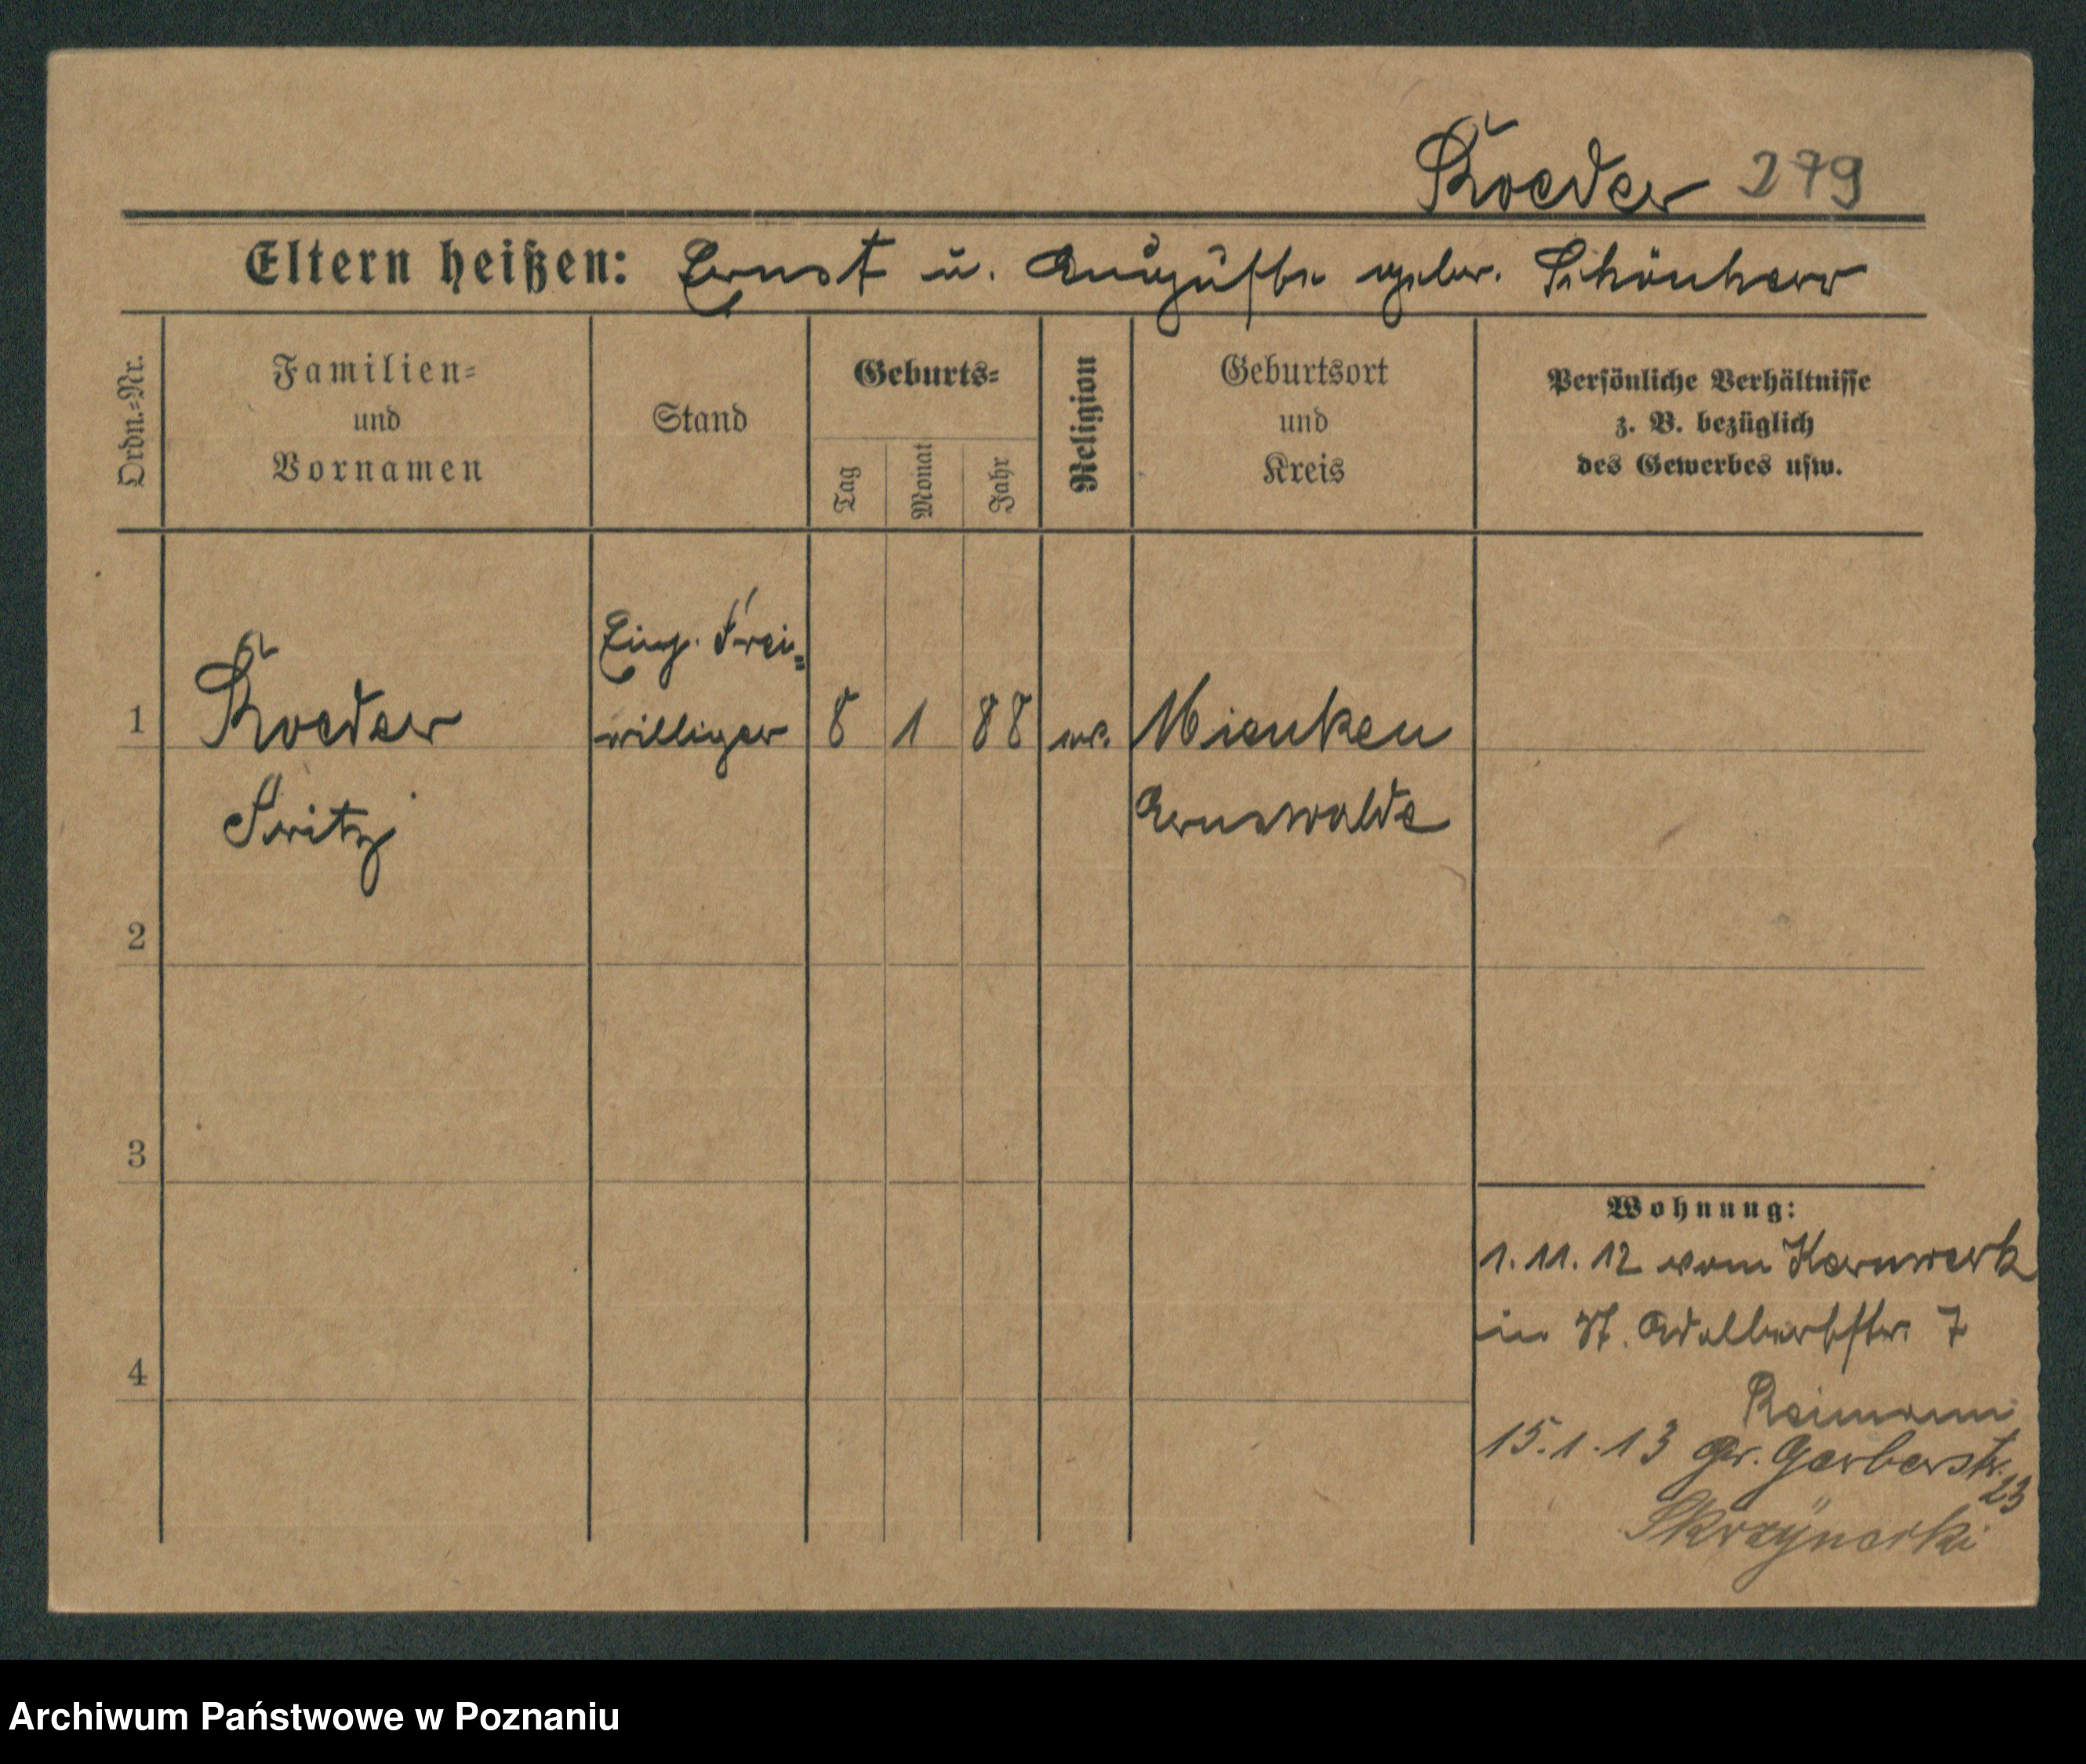 Roeder 279
Eltern heißen: Ernst u. Auguste geb. Schönherr
Ordn.=Nr.
Familien=
und
Vornamen
Stand
Geburts=
Tag
Monat
Jahr
Religion
Geburtsort
und
Kreis
Persönliche Verhältnisse
z. B. bezüglich
des Gewerbes usw.
Einj. Frei=
1 Roeder williger 8 1 88 Mienken
Fritz Arnswalde
2
3
4
Wohnung:
1.11.12 vom Kernwerk
in St. Adalbertstr. 7
Reimann
15.1.13 Gr. Gerberstr.
23
Skrzynecki
Archiwum Państwowe w Poznaniu